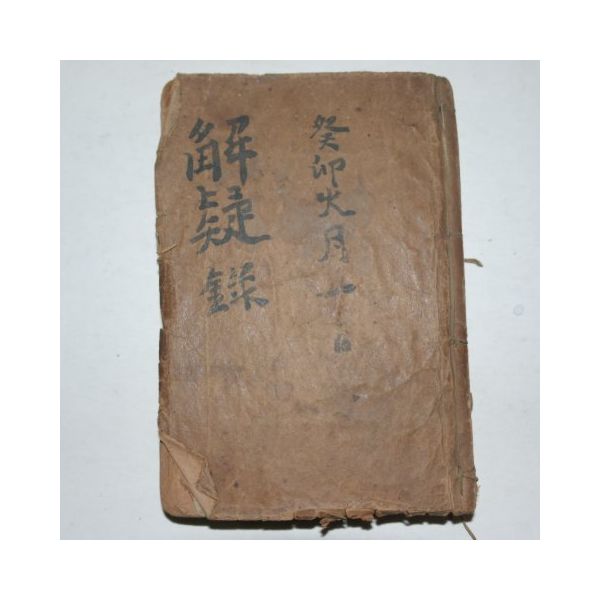 癸卯火月十日
解疑錄